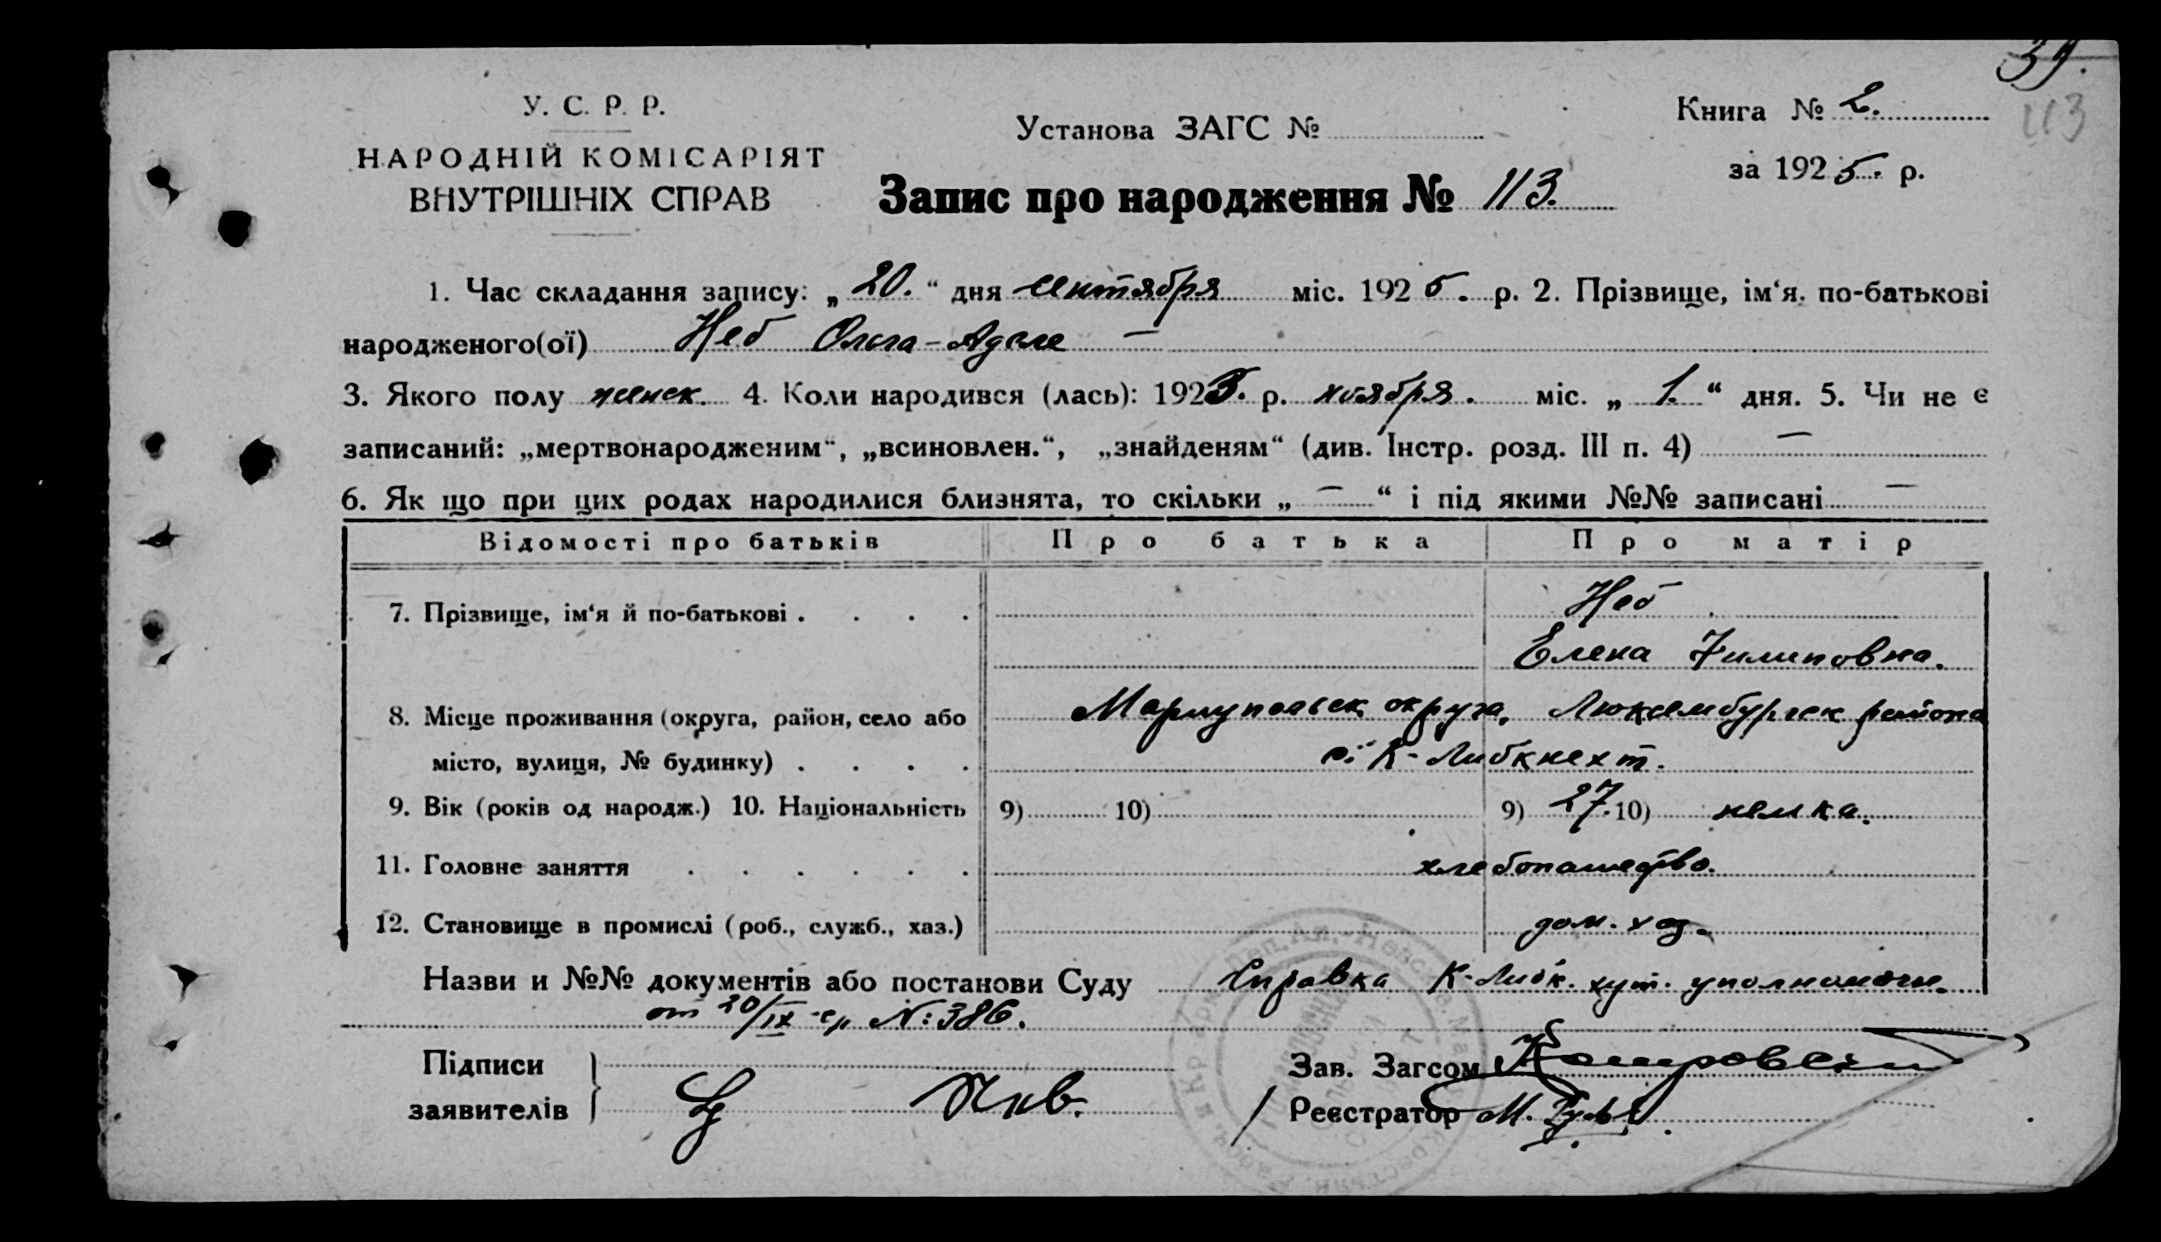 39.
113
У. С. Р. Р.
НАРОДНІЙ КОМІСАРІЯТ
ВНУТРІШНІХ СПРАВ
Установа ЗАГС №
Запис про народження № 113.
Книга № 2.
за 1925. р.
1. Час складання запису: „20.“ дня сентября міс. 1925. р. 2. Прізвище, ім‘я, по-батькові
народженого(ої) Неб Ольга-Аделе —
3. Якого полу женск. 4. Коли народився (лась): 1923. р. ноября. міс. „1.“ дня. 5. Чи не є
записаний: „мертвонародженим“, „всиновлен.“, „знайденям“ (див. Інстр. розд. III п. 4) —
6. Як що при цих родах народилися близнята, то скільки „ — “ і під якими №№ записані —
Відомості про батьків Про батька Про матір
7. Прізвище, ім‘я й по-батькові . . . . Неб
Елена Филиповна.
8. Місце проживання (округа, район, село або Мариупольск округа, Люксембургск района
місто, вулиця, № будинку) . . . . К-Либкнехт.
9. Вік (років од народж.) 10. Національність 9) 10) 9) 27. 10) немка.
11. Головне заняття . . . . . . хлебопашество.
12. Становище в промислі (роб., служб., хаз.) дом. хоз.
Назви и №№ документів або постанови Суду Справка К-Либк. хут. уполномочен.
от 20/IX с/г №: 386.
Підписи
заявителів
Зав. Загсом
Реєстратор М.